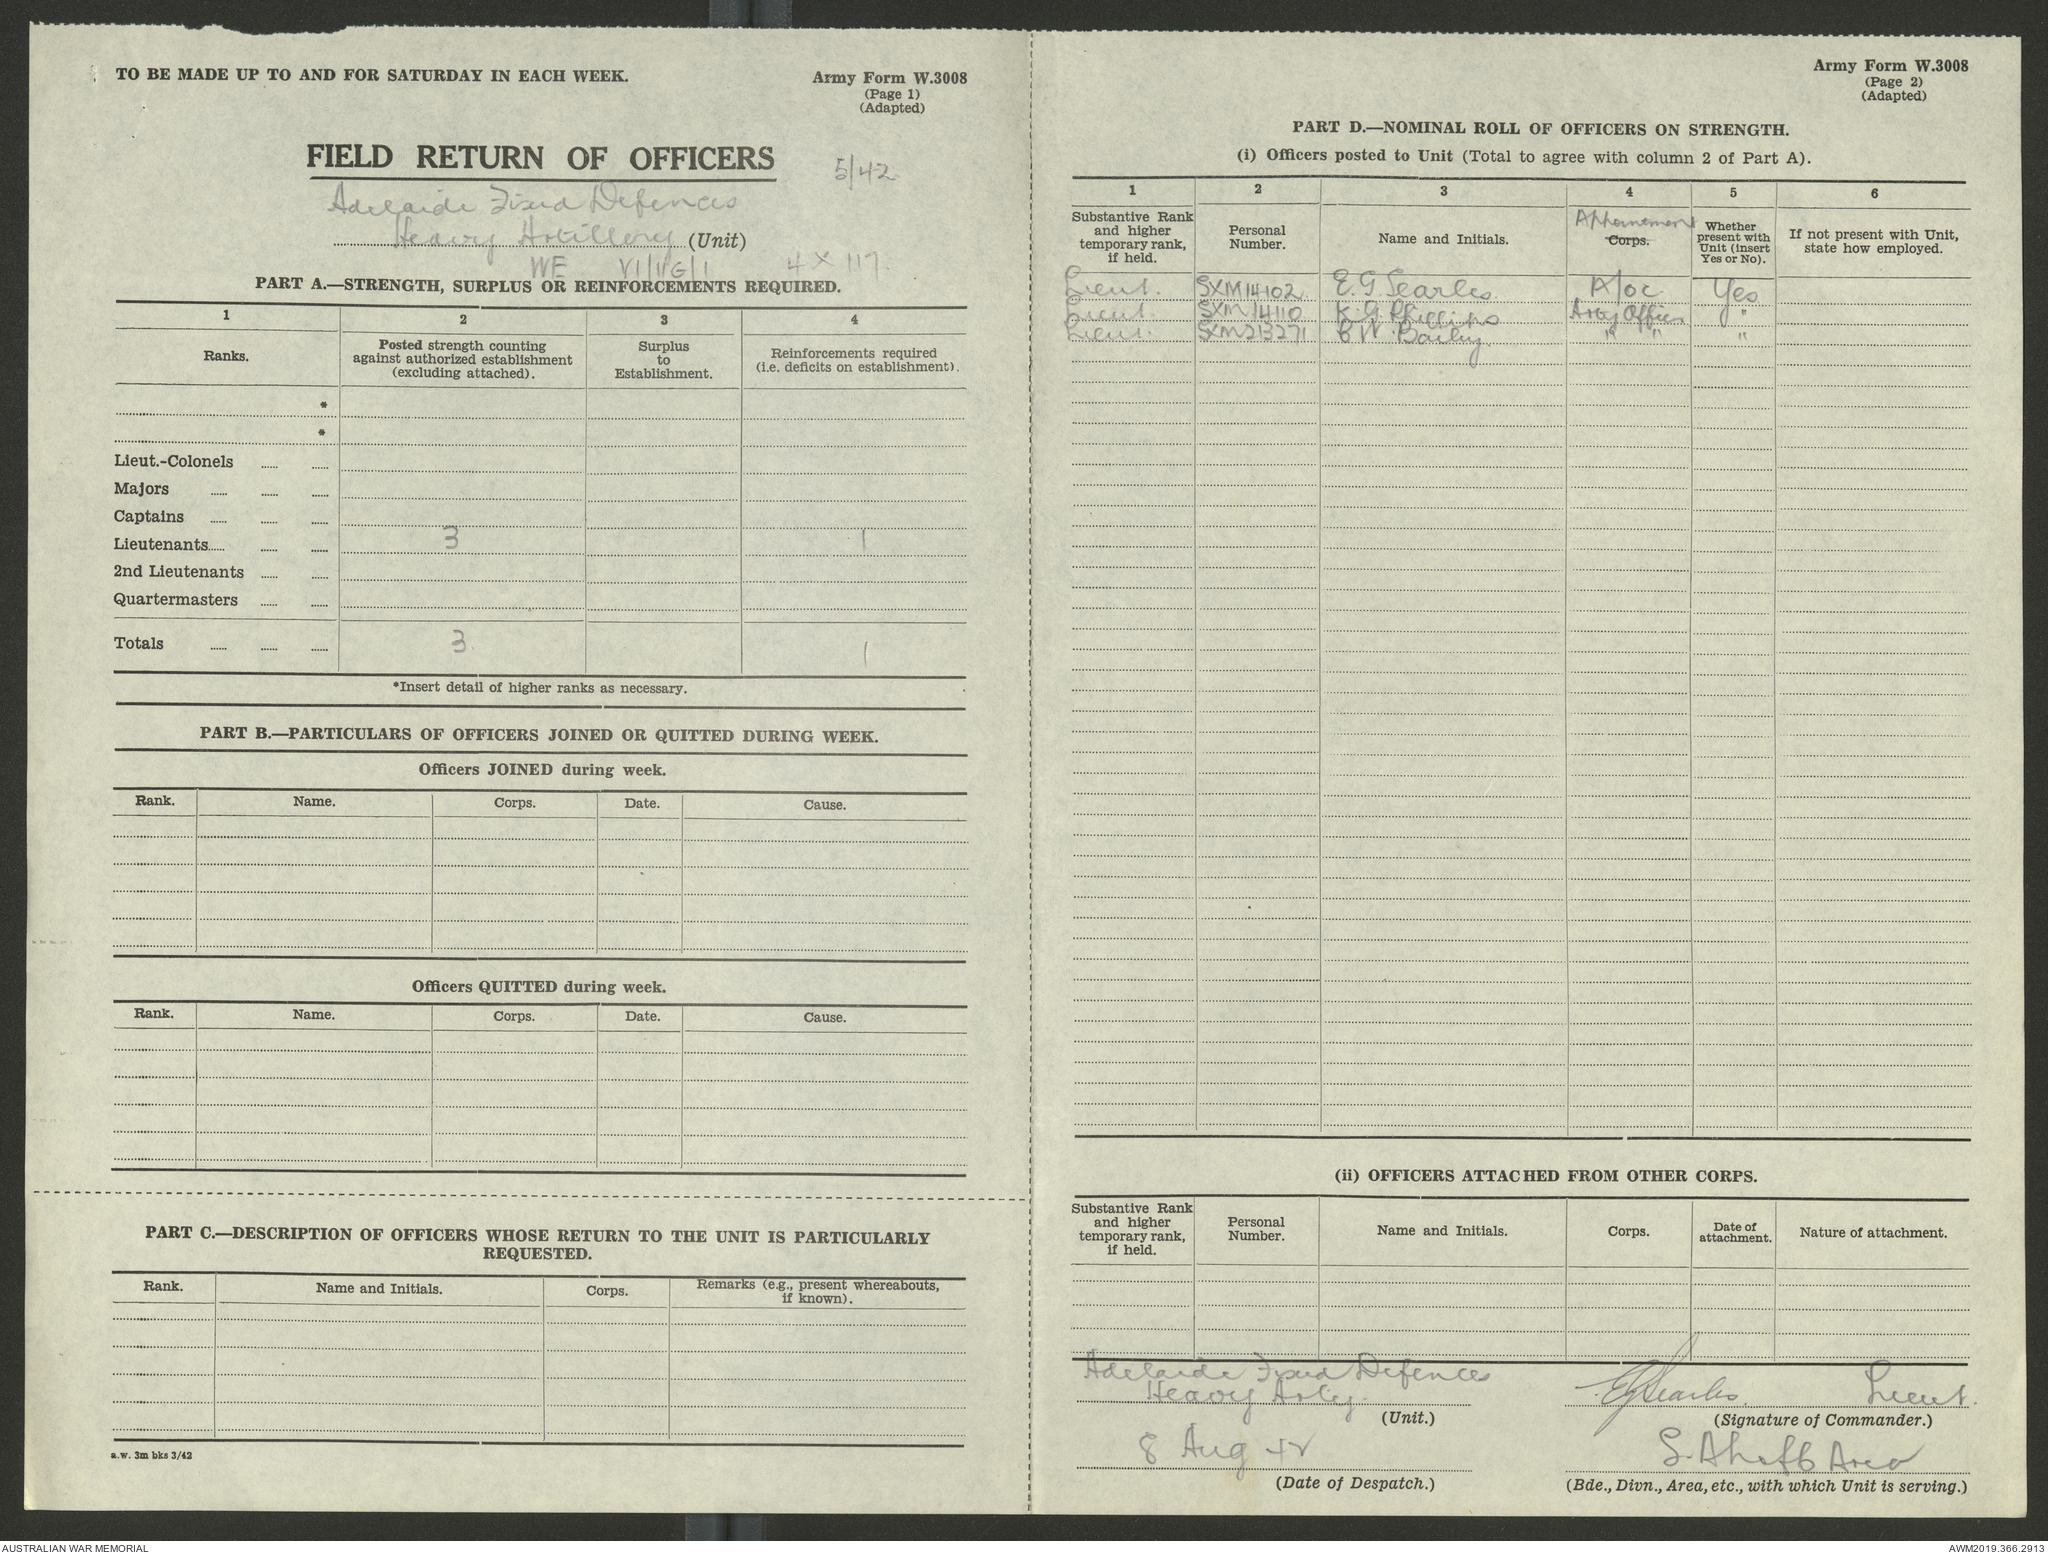 TO BE MADE UP TO AND FOR SATURDAY IN EACH WEEK.
Army Form W.3008
(Page 1)
(Adapted)
FIELD RETURN OF OFFICERS
5/42
Adelaide Fixed Defences
Heavy Artillery (Unit)
WE VI/1G/1 4 X 117.
PART A.—STRENGTH, SURPLUS OR REINFORCEMENTS REQUIRED.
1 2 3 4
Ranks.
Posted strength counting against authorized establishment (excluding attached).
Surplus to Establishment.
Reinforcements required (i.e. deficits on establishment).
*
*
Lieut.-Colonels
Majors
Captains
Lieutenants 3 1
2nd Lieutenants
Quartermasters
Totals 3 1
*Insert detail of higher ranks as necessary.
PART B.—PARTICULARS OF OFFICERS JOINED OR QUITTED DURING WEEK.
Officers JOINED during week.
Rank. Name. Corps. Date. Cause.
Officers QUITTED during week.
Rank. Name. Corps. Date. Cause.
PART C.—DESCRIPTION OF OFFICERS WHOSE RETURN TO THE UNIT IS PARTICULARLY
REQUESTED.
Rank. Name and Initials. Corps. Remarks (e.g., present whereabouts, if known).
a.w. 3m bks 3/42
Army Form W.3008
(Page 2)
(Adapted)
PART D.—NOMINAL ROLL OF OFFICERS ON STRENGTH.
(i) Officers posted to Unit (Total to agree with column 2 of Part A).
1 2 3 4 5 6
Substantive Rank and higher temporary rank, if held.
Personal Number.
Name and Initials.
Appointment
Corps.
Whether present with Unit (insert Yes or No).
If not present with Unit, state how employed.
Lieut. SXM14102 E.G Searles A/OC Yes
Lieut. SXM14110 K.G Phillips Arty Officer "
Lieut. SXM213271 C W. Bailey " " "
(ii) OFFICERS ATTACHED FROM OTHER CORPS.
Substantive Rank and higher temporary rank, if held.
Personal Number.
Name and Initials.
Corps.
Date of attachment.
Nature of attachment.
Adelaide Fixed Defences
Heavy Arty.
(Unit.)
EGSearles. Lieut.
(Signature of Commander.)
8 Aug 42
(Date of Despatch.)
Area
(Bde., Divn., Area, etc., with which Unit is serving.)
AUSTRALIAN WAR MEMORIAL
AWM2019.366.2913